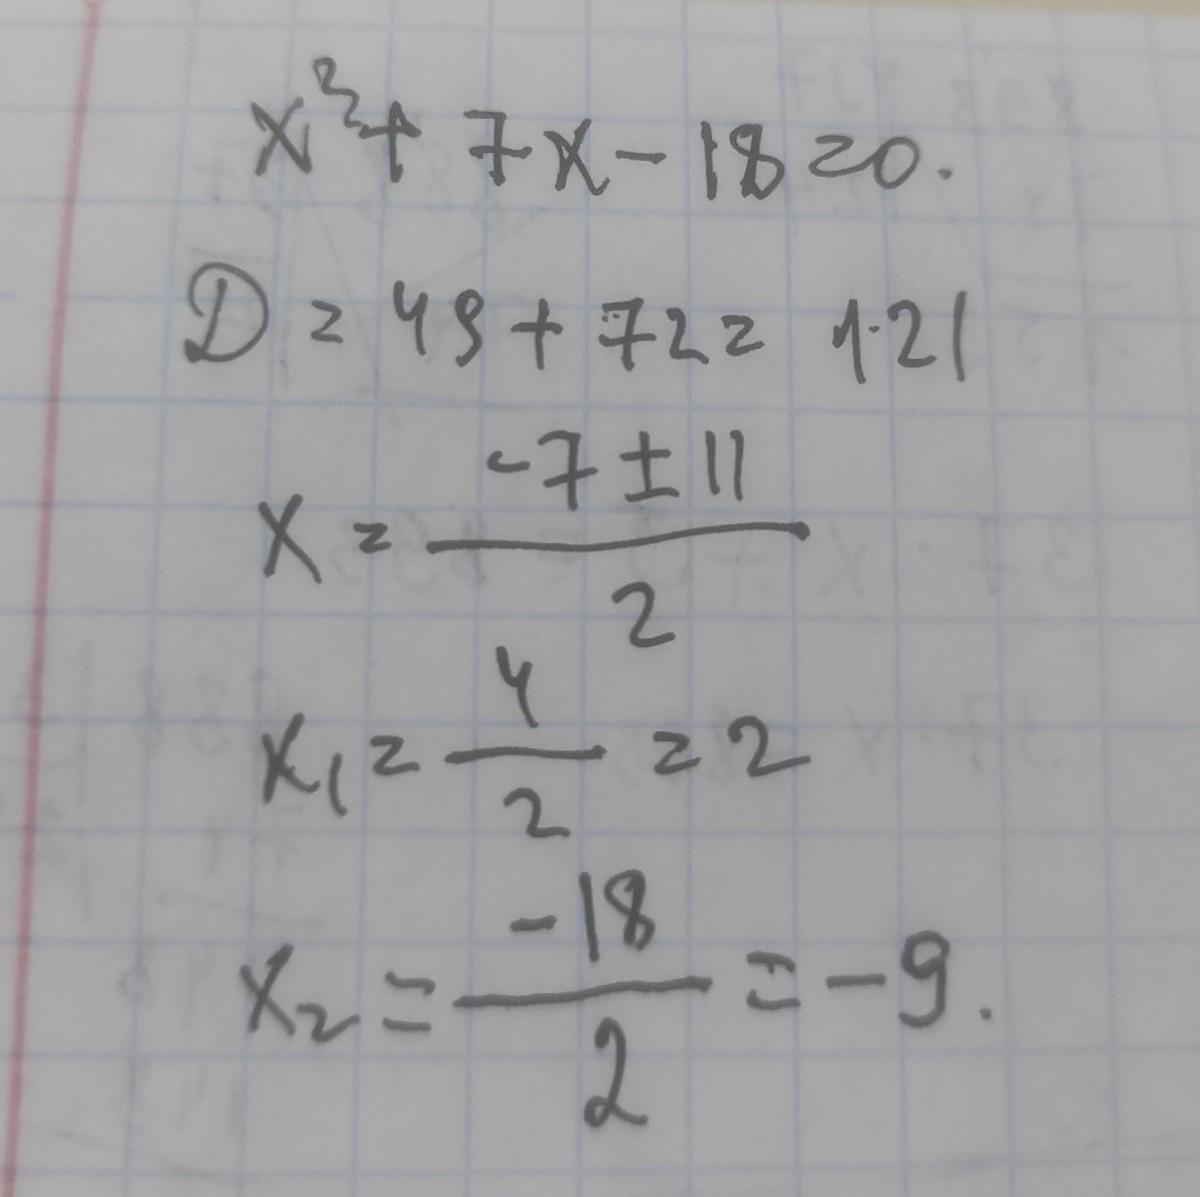 x² + 7x - 18 = 0.
D = 49 + 72 = 121
x = (-7 ± 11) / 2
x₁ = 4/2 = 2
x₂ = -18/2 = -9.